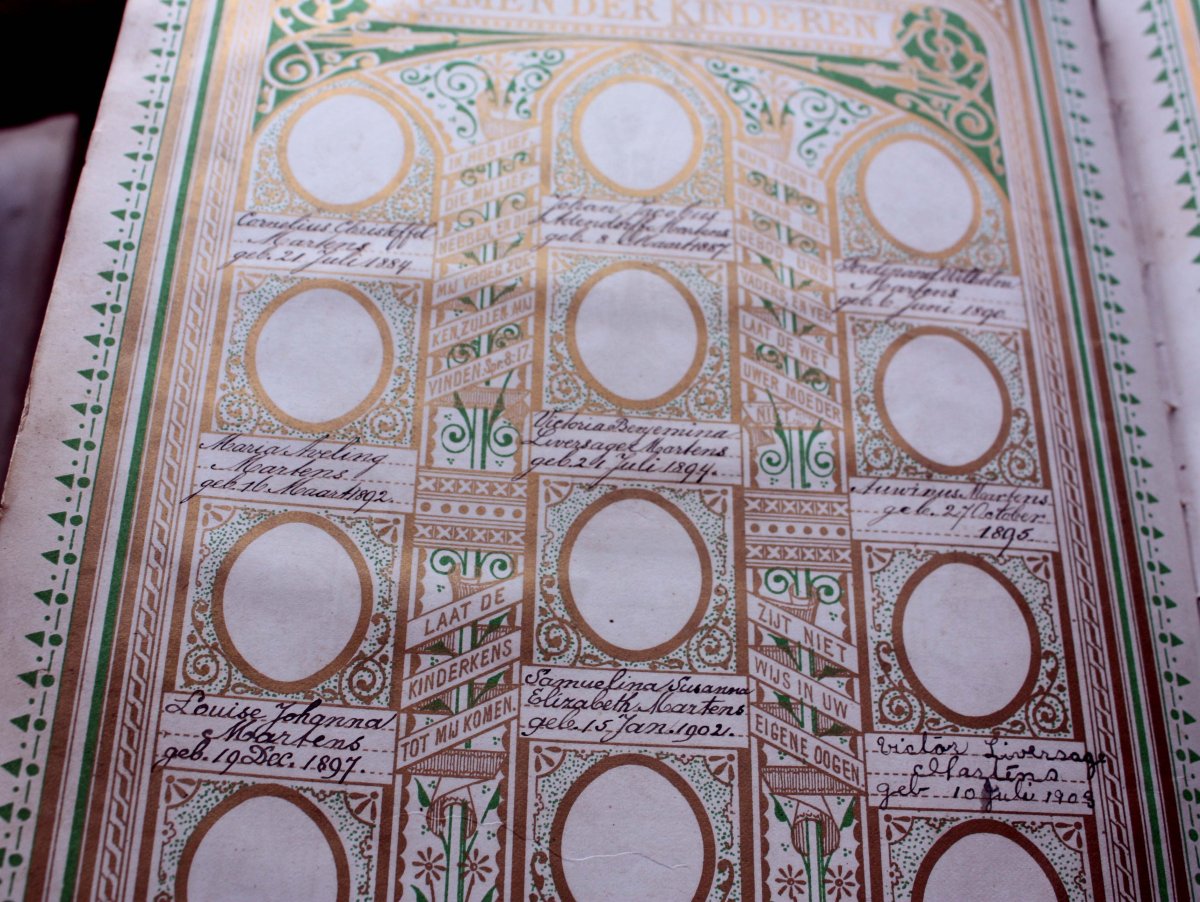 NAMEN DER KINDEREN
Cornelius Christoffel
Martens
geb. 21 Juli 1884
Johan
Martens
geb. 8 Maart 1887
Ferdinand Wilhelm
Martens
geb. 6 Juni 1890.
Maria Aveling
Martens
geb. 16 Maart 1892.
Victoria Benjemina
Liversage Martens
geb. 24 Juli 1894.
Antwinus Martens
geb. 27 October
1895.
Louise Johanna
Martens
geb. 19 Dec. 1897.
Samuelina Susanna
Elizabeth Martens
geb. 15 Jan. 1902.
Victor Liversage
Martens
geb 10 Juli 1903
IK HEB LIEF
DIE MIJ LIEF
HEBBEN, EN DIE
MIJ VROEG ZOE
KEN, ZULLEN MIJ
VINDEN. Spr. 8:17
MIJN ZOON!
BEWAAR HET
GEBOD UWS
VADERS, EN VER
LAAT DE WET
UWER MOEDER
NIET
LAAT DE
KINDERKENS
TOT MIJ KOMEN.
ZIJT NIET
WIJS IN UW
EIGENE OOGEN